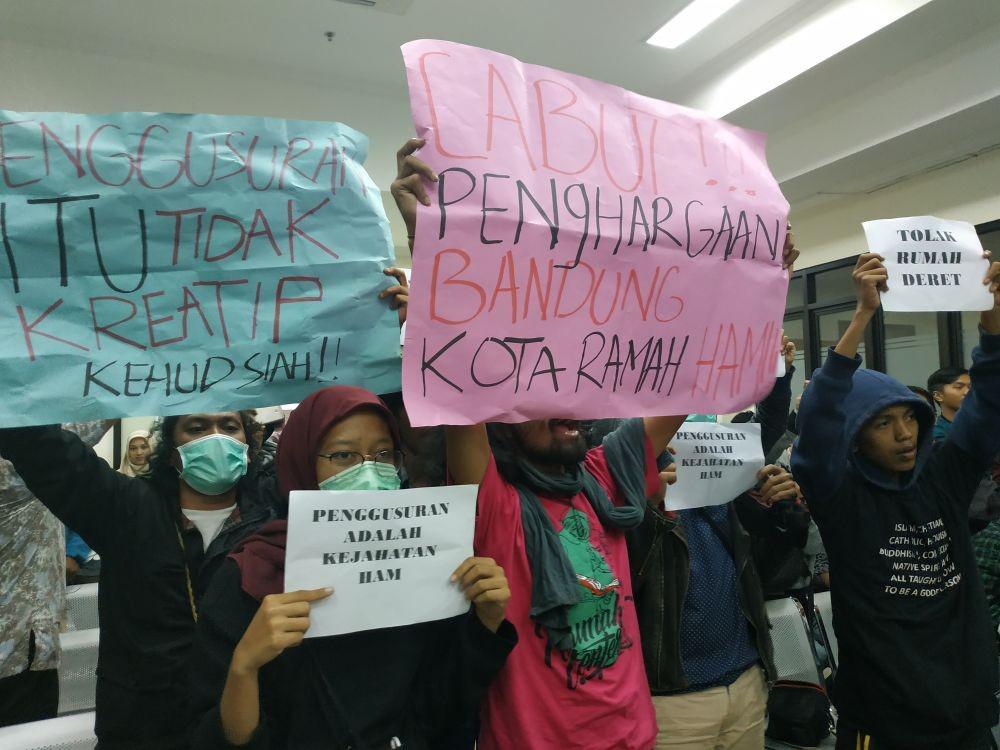 ENGGUSURAN
ITU TIDAK
KREATIP
KEHUD SIAH!!
CABUT!!!
PENGHARGAAN
BANDUNG
KOTA RAMAH HAM!
TOLAK
RUMAH
DERET
PENGGUSURAN
ADALAH
KEJAHATAN
HAM
PENGGUSURAN
ADALAH
KEJAHATAN
HAM
CATHOLIC,
BUDDHISM,
NATIVE
ALL TAUGHT
TO BE A GOOD PERSON